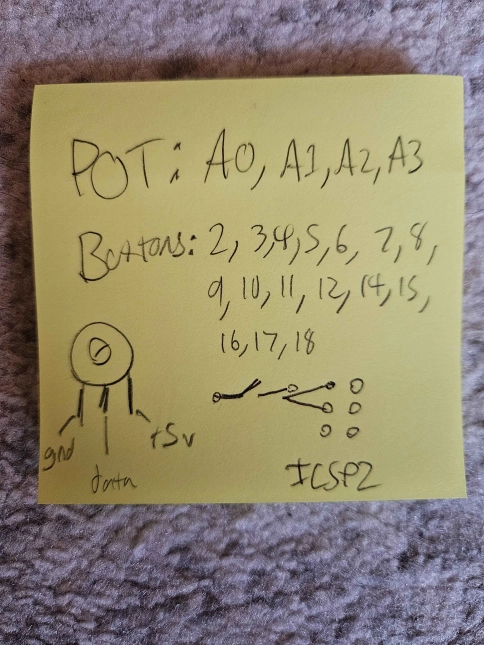 POT: A0, A1, A2, A3
Buttons: 2, 3, 4, 5, 6, 7, 8,
9, 10, 11, 12, 14, 15,
16, 17, 18
gnd
data
+5v
ICSP2